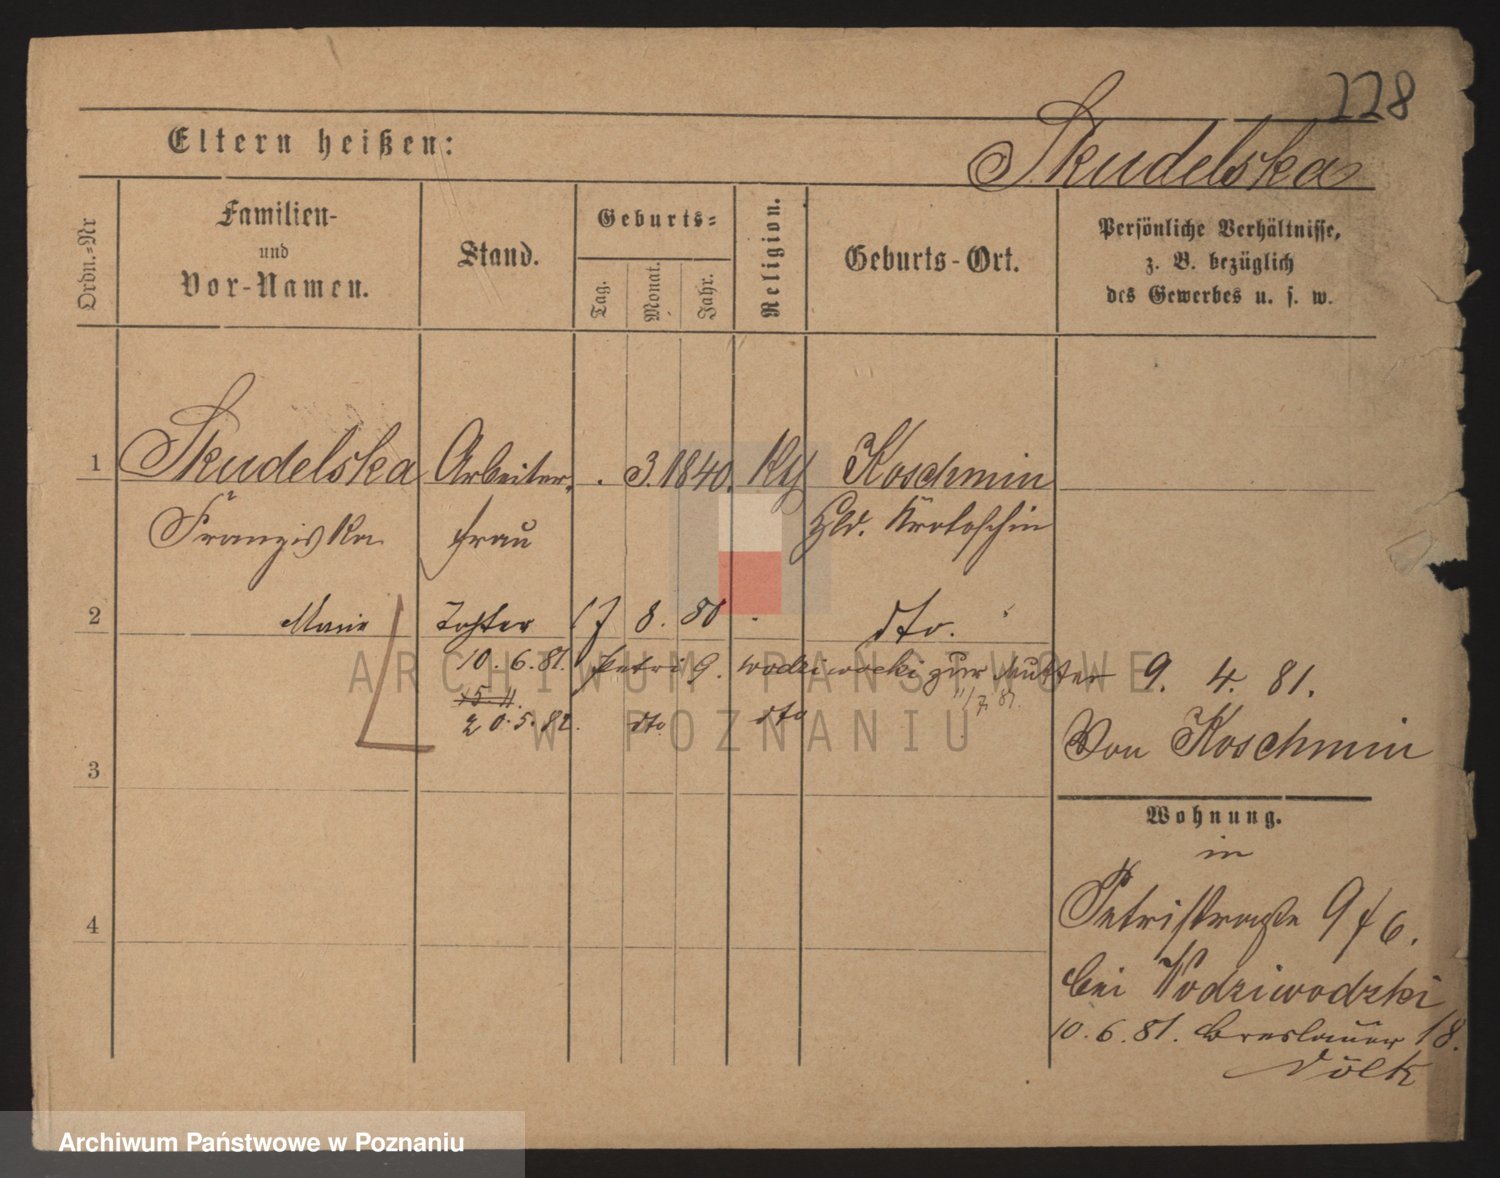 228
Eltern heißen:
Skudelska
Ordn.-Nr
Familien-
und
Vor-Namen.
Stand.
Geburts-
Tag.
Monat.
Jahr.
Religion.
Geburts-Ort.
Persönliche Verhältnisse,
z. B. bezüglich
des Gewerbes u. s. w.
1 Skudelska Arbeiter- . 3. 1840. Koschmin
Franziska frau Krotoschin
2 Marie Tochter 17 8. 80 . dto.
10. 6. 81. Petri 9. wodziwocki zur Mutter
15. 11.
20. 5. 82. dto dto
9. 4. 81.
Von Koschmin
3
Wohnung.
in
Petristraße 9
4
bei Wodziwodzki
10. 6. 81. Breslauer 18.
ARCHIWUM PAŃSTWOWE
W POZNANIU
Archiwum Państwowe w Poznaniu